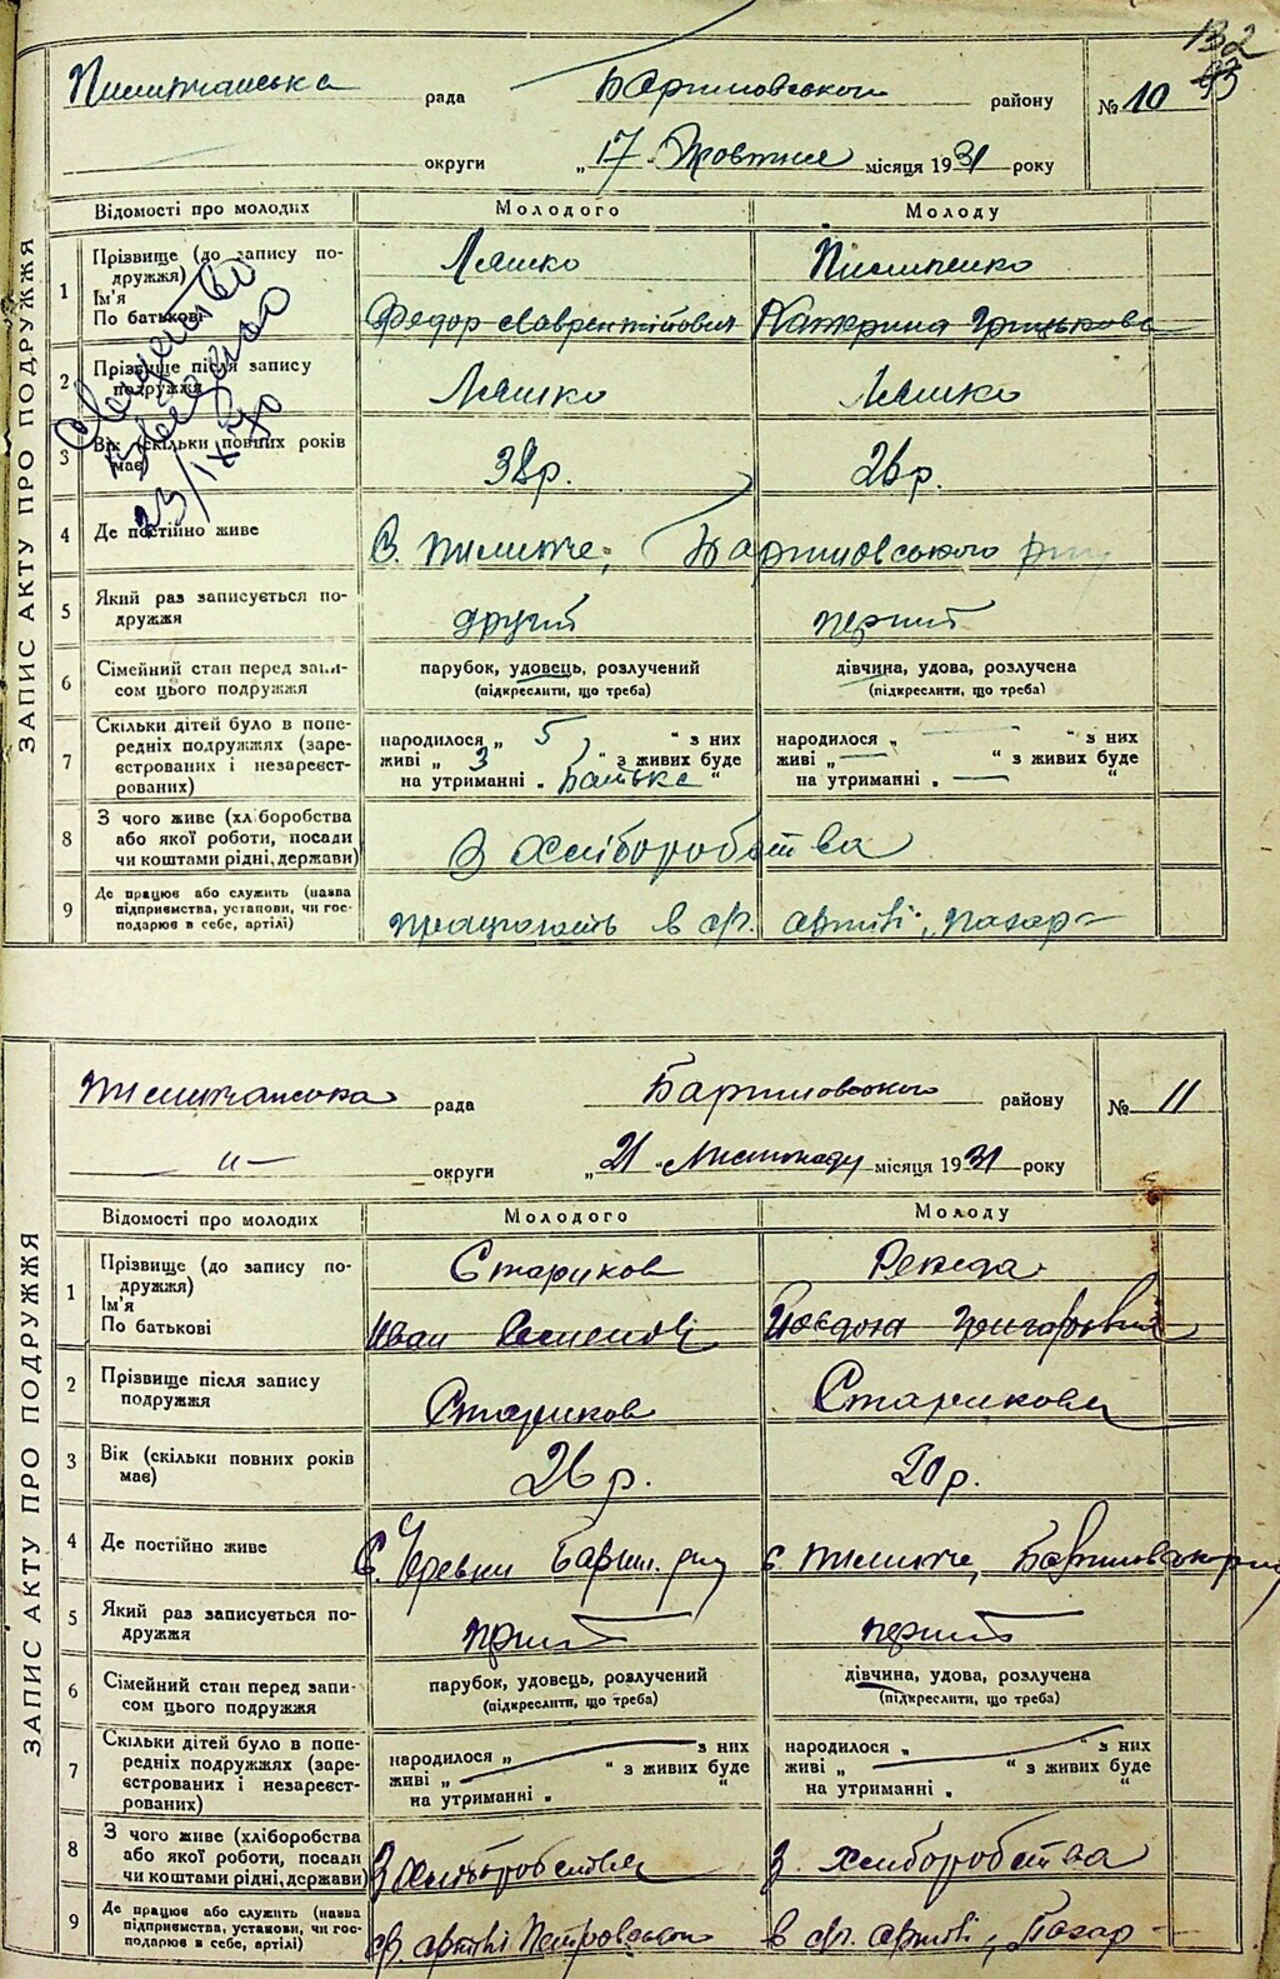 132
93
Пилипчанська рада Баришовського району № 10
округи „17“ Жовтня місяця 1931 року
ЗАПИС АКТУ ПРО ПОДРУЖЖЯ
Відомості про молодих Молодого Молоду
1 Прізвище (до запису по-
дружжя) Ляшко Пилипенко
Ім'я
По батькові Федор Лаврентійович Катерина Грицькова
2 Прізвище після запису
подружжя Ляшко Ляшко
Свидетельство
выдано
23/IX
3 Вік (скільки повних років
має) 38р. 26р.
4 Де постійно живе С. Пилипче, Баришовського р-ну
5 Який раз записується по-
дружжя другий перший
6 Сімейний стан перед запи-
сом цього подружжя парубок, удовець, розлучений дівчина, удова, розлучена
(підкреслити, що треба) (підкреслити, що треба)
7 Скільки дітей було в попе-
редніх подружжях (заре-
єстрованих і незареєст-
рованих) народилося „ 5 “ з них народилося „ — “ з них
живі „ 3 “ з живих буде живі „ — “ з живих буде
на утриманні „ Батька “ на утриманні „ — “
8 З чого живе (хліборобства
або якої роботи, посади
чи коштами рідні, держави) З Хліборобства
9 Де працює або служить (назва
підприємства, установи, чи гос-
подарює в себе, артілі) працюють в с/г. артілі,
ЗАПИС АКТУ ПРО ПОДРУЖЖЯ
Пилипчанська рада Баришовського району № 11
—„— округи „21“ Листопаду місяця 1931 року
Відомості про молодих Молодого Молоду
1 Прізвище (до запису по-
дружжя) Стариков
Ім'я
По батькові Иван
2 Прізвище після запису
подружжя Стариков Старикова
3 Вік (скільки повних років
має) 26 р. 20 р.
4 Де постійно живе С. Бариш. р-ну С. Пилипче, Баришовського р-ну
5 Який раз записується по-
дружжя перший перший
6 Сімейний стан перед запи-
сом цього подружжя парубок, удовець, розлучений дівчина, удова, розлучена
(підкреслити, що треба) (підкреслити, що треба)
7 Скільки дітей було в попе-
редніх подружжях (заре-
єстрованих і незареєст-
рованих) народилося „ — з них народилося „ — “ з них
живі „ “ з живих буде живі „ “ з живих буде
на утриманні „ на утриманні „ “
8 З чого живе (хліборобства
або якої роботи, посади
чи коштами рідні, держави) З Хліборобства З Хліборобства
9 Де працює або служить (назва
підприємства, установи, чи гос-
подарює в себе, артілі) с/г. артілі Петровського в с/г. артілі,